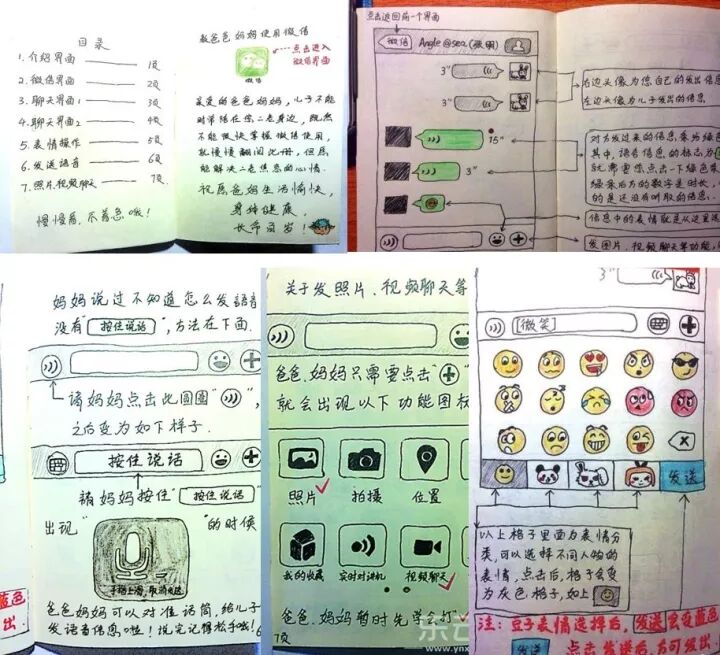 目录
1.介绍界面 1页
2.微信界面 2页
3.聊天界面1 3页
4.聊天界面2 4页
5.表情操作 5页
6.发送语音 6页
7.照片视频聊天 7页
慢慢看,不着急哦!
教爸爸妈妈使用微信
点击进入
微信界面
微信
亲爱的爸爸妈妈,儿子不能
时常陪在您二老身边,既然
不能很快掌握微信使用,
就慢慢翻阅此册,但愿
能解决二老焦急的心情.
祝愿爸妈生活愉快,
身体健康,
长命百岁!
点击返回前一个界面
微信
Angle@sea(张明)
3"
3"
15"
3"
右边头像为您自己的发出信息
左边头像为儿子发出的信息
对方发过来的信息
其中,语音信息的标志为
就需要您点击一下绿色
绿条后方的数字是时长,
的是还没有听取的信息.
信息中的表情就是从这里
发图片、视频聊天等功能,
妈妈说过不知道怎么发语音
没有"按住说话",方法在下面.
请妈妈点击此圆圈" ",
之后变为如下样子.
按住说话
请妈妈按住"按住说话"
出现" "的时候
手指上滑,取消发送
爸爸妈妈可以对准话筒,给儿子
发语音信息啦!说完记得松手哦!
6
关于发照片、视频聊天等
爸爸、妈妈只需要点击"+"
就会出现以下功能图标
照片
拍摄
位置
我的收藏
实时对讲机
视频聊天
爸爸、妈妈暂时先学会打
7页
3"
[微笑]
发送
以上格子里面为表情分
类,可以选择不同人物的
表情,点击后,格子会变
为灰色格子,如上
注:豆子表情选择后,发送会变蓝色
点击发送后,方可发出.
发送
蓝色
出.